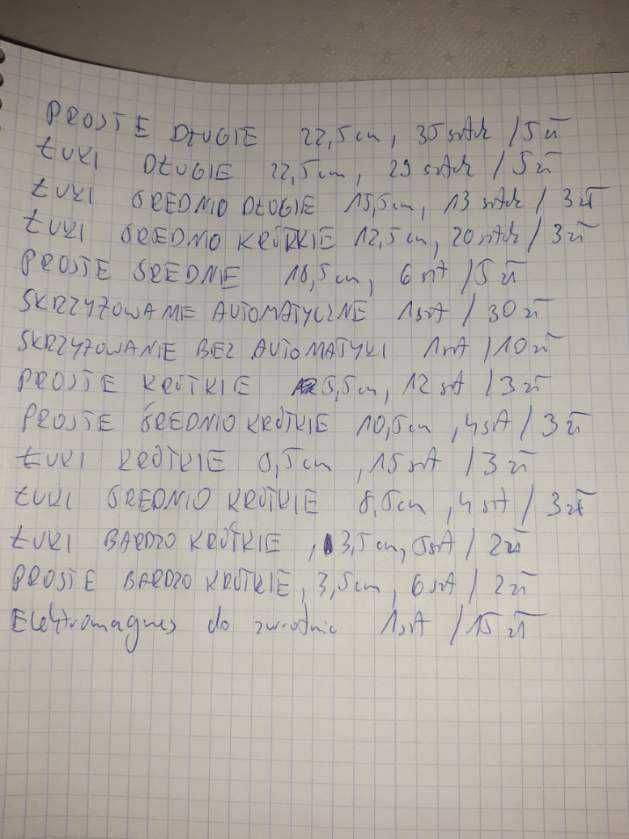 PROSTE DŁUGIE 22,5cm, 35 sztuk / 5 zł
ŁUKI DŁUGIE 22,5cm, 29 sztuk / 5 zł
ŁUKI ŚREDNIO DŁUGIE 15,5cm, 13 sztuk / 3 zł
ŁUKI ŚREDNIO KRÓTKIE 12,5cm, 20 sztuk / 3 zł
PROSTE ŚREDNIE 18,5cm, 6 szt / 5 zł
SKRZYŻOWANIE AUTOMATYCZNE 1 szt / 30 zł
SKRZYŻOWANIE BEZ AUTOMATYKI 1 szt / 10 zł
PROSTE KRÓTKIE 5,5cm, 12 szt / 3 zł
PROSTE ŚREDNIO KRÓTKIE 10,5cm, 4 szt / 3 zł
ŁUKI KRÓTKIE ,5cm, 15 szt / 3 zł
ŁUKI ŚREDNIO KRÓTKIE 8,5cm, 4 szt / 3 zł
ŁUKI BARDZO KRÓTKIE, 3,5cm, szt / 2 zł
PROSTE BARDZO KRÓTKIE, 3,5cm, 6 szt / 2 zł
Elektromagnes do zwrotnic 1 szt / 15 zł